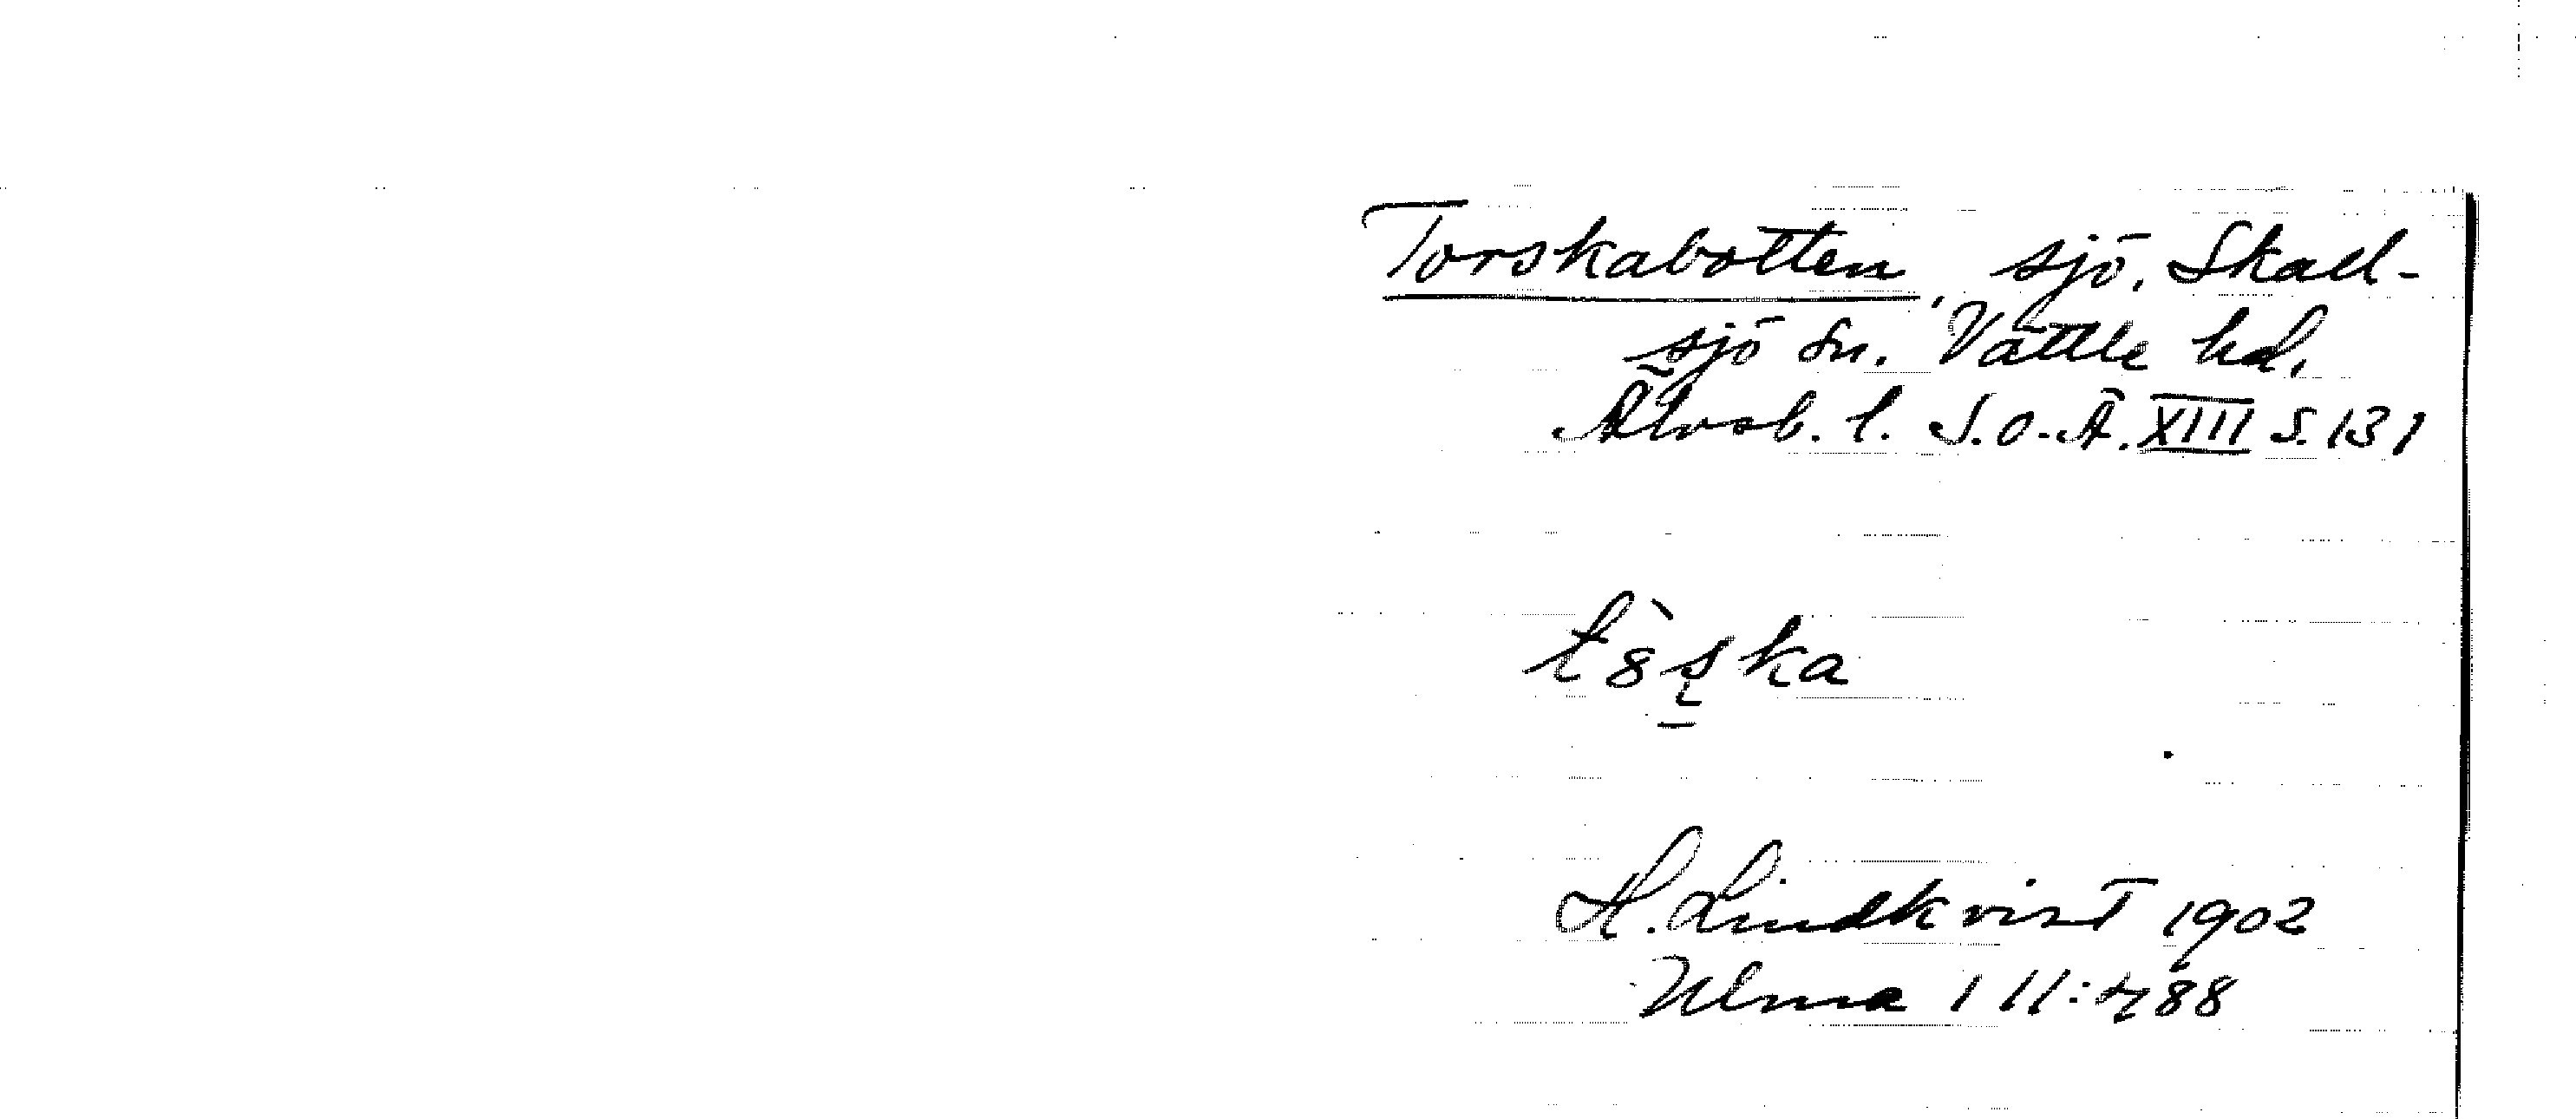 Torskabotten, sjö, Skall-
sjö sn. Vättle hd.
Älvsb. l. S.O.Ä. XIII s. 131
tòska
A. Lindkvist 1902
Ulma 111:488